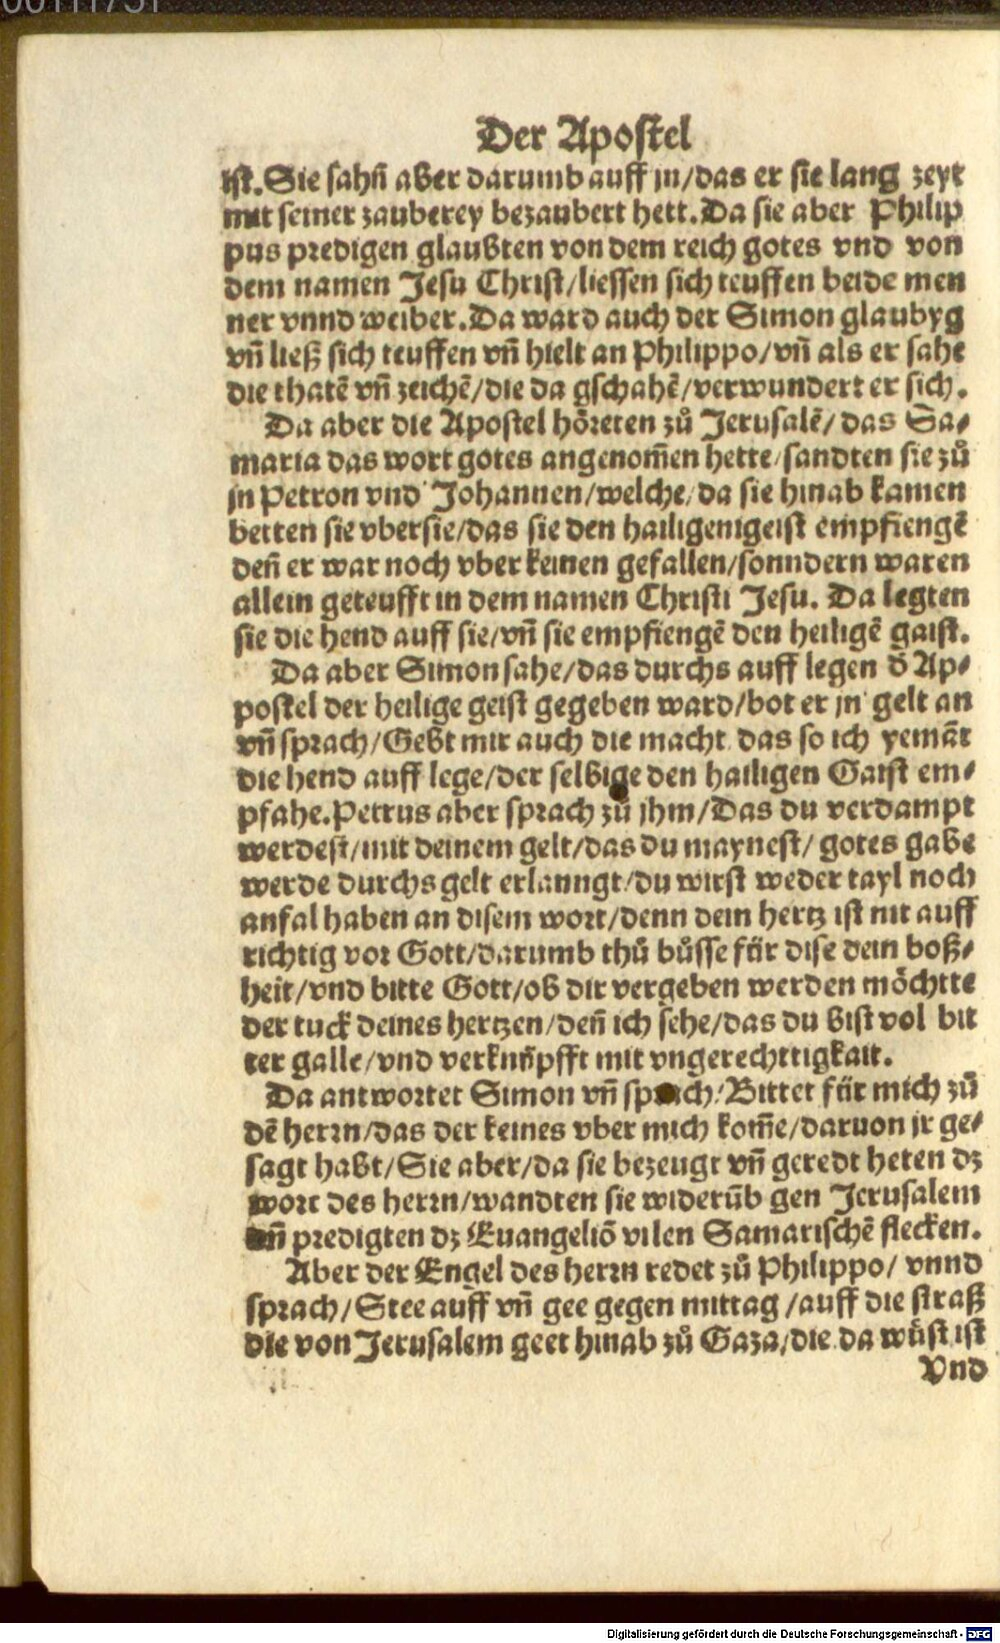 00111731
Der Apostel
ist. Sie sahñ aber darumb auff jn/das er sie lang zeyt
mit seiner zauberey bezaubert hett. Da sie aber Philip
pus predigen glaubten von dem reich gotes vnd von
dem namen Jesu Christ/liessen sich teuffen beide men
ner vnnd weiber. Da ward auch der Simon glaubyg
vñ ließ sich teuffen vñ hielt an Philippo/vñ als er sahe
die thatē vñ zeichē/die da gschahē/verwundert er sich.
Da aber die Apostel hõreten zů Jerusalē/das Sa⸗
maria das wort gotes angenom̃en hette/sandten sie zů
jn Petron vnd Johannen/welche/da sie hinab kamen
betten sie vber sie/das sie den hailigen geist empfiengē
deñ er war noch vber keinen gefallen/sonndern waren
allein geteufft in dem namen Christi Jesu. Da legten
sie die hend auff sie/vñ sie empfiengē den heiligē gaist.
Da aber Simon sahe/das durchs auff legen õ Ap⸗
postel der heilige geist gegeben ward/bot er jn gelt an
vñ sprach/Gebt mir auch die macht das so ich yemãt
die hend auff lege/der selbige den hailigen Gaist em⸗
pfahe. Petrus aber sprach zů jhm/Das du verdampt
werdest/mit deinem gelt/das du maynest/gotes gabe
werde durchs gelt erlanngt/du wirst weder tayl noch
anfal haben an disem wort/denn dein hertz ist nit auff
richtig vor Gott/darumb thů bůsse für dise dein boß⸗
heit/vnd bitte Gott/ob dir vergeben werden möchtte
der tuck deines hertzen/deñ ich sehe/das du bist vol bit
ter galle/vnd verknüpfft mit vngerechttigkait.
Da antwortet Simon vñ sprach/Bittet für mich zů
dē herrn/das der keines vber mich kom̃e/daruon jr ge⸗
sagt habt/Sie aber/da sie bezeugt vñ geredt heten dz
wort des herrn/wandten sie widerũb gen Jerusalem
vñ predigten dz Euangeliõ vilen Samarischē flecken.
Aber der Engel des herrn redet zů Philippo/vnnd
sprach/Stee auff vñ gee gegen mittag/auff die straß
die von Jerusalem geet hinab zů Gaza/die da wůst ist
Vnd
Digitalisierung gefördert durch die Deutsche Forschungsgemeinschaft - DFG